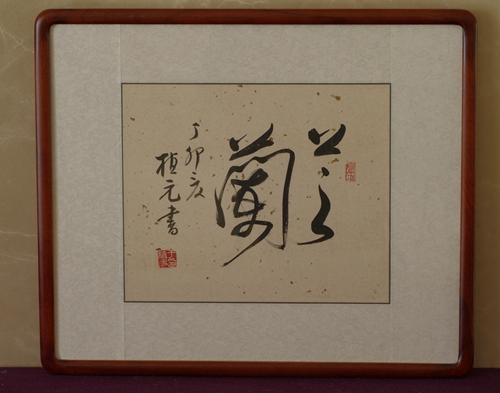 芝蘭
丁卯夏
植元書